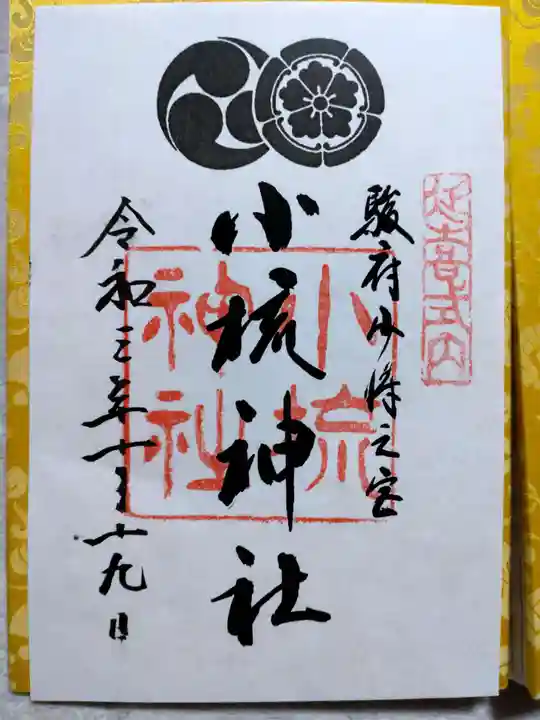 延喜式内
駿府少将之宮
小梳神社
小梳神社
令和三年十月十九日